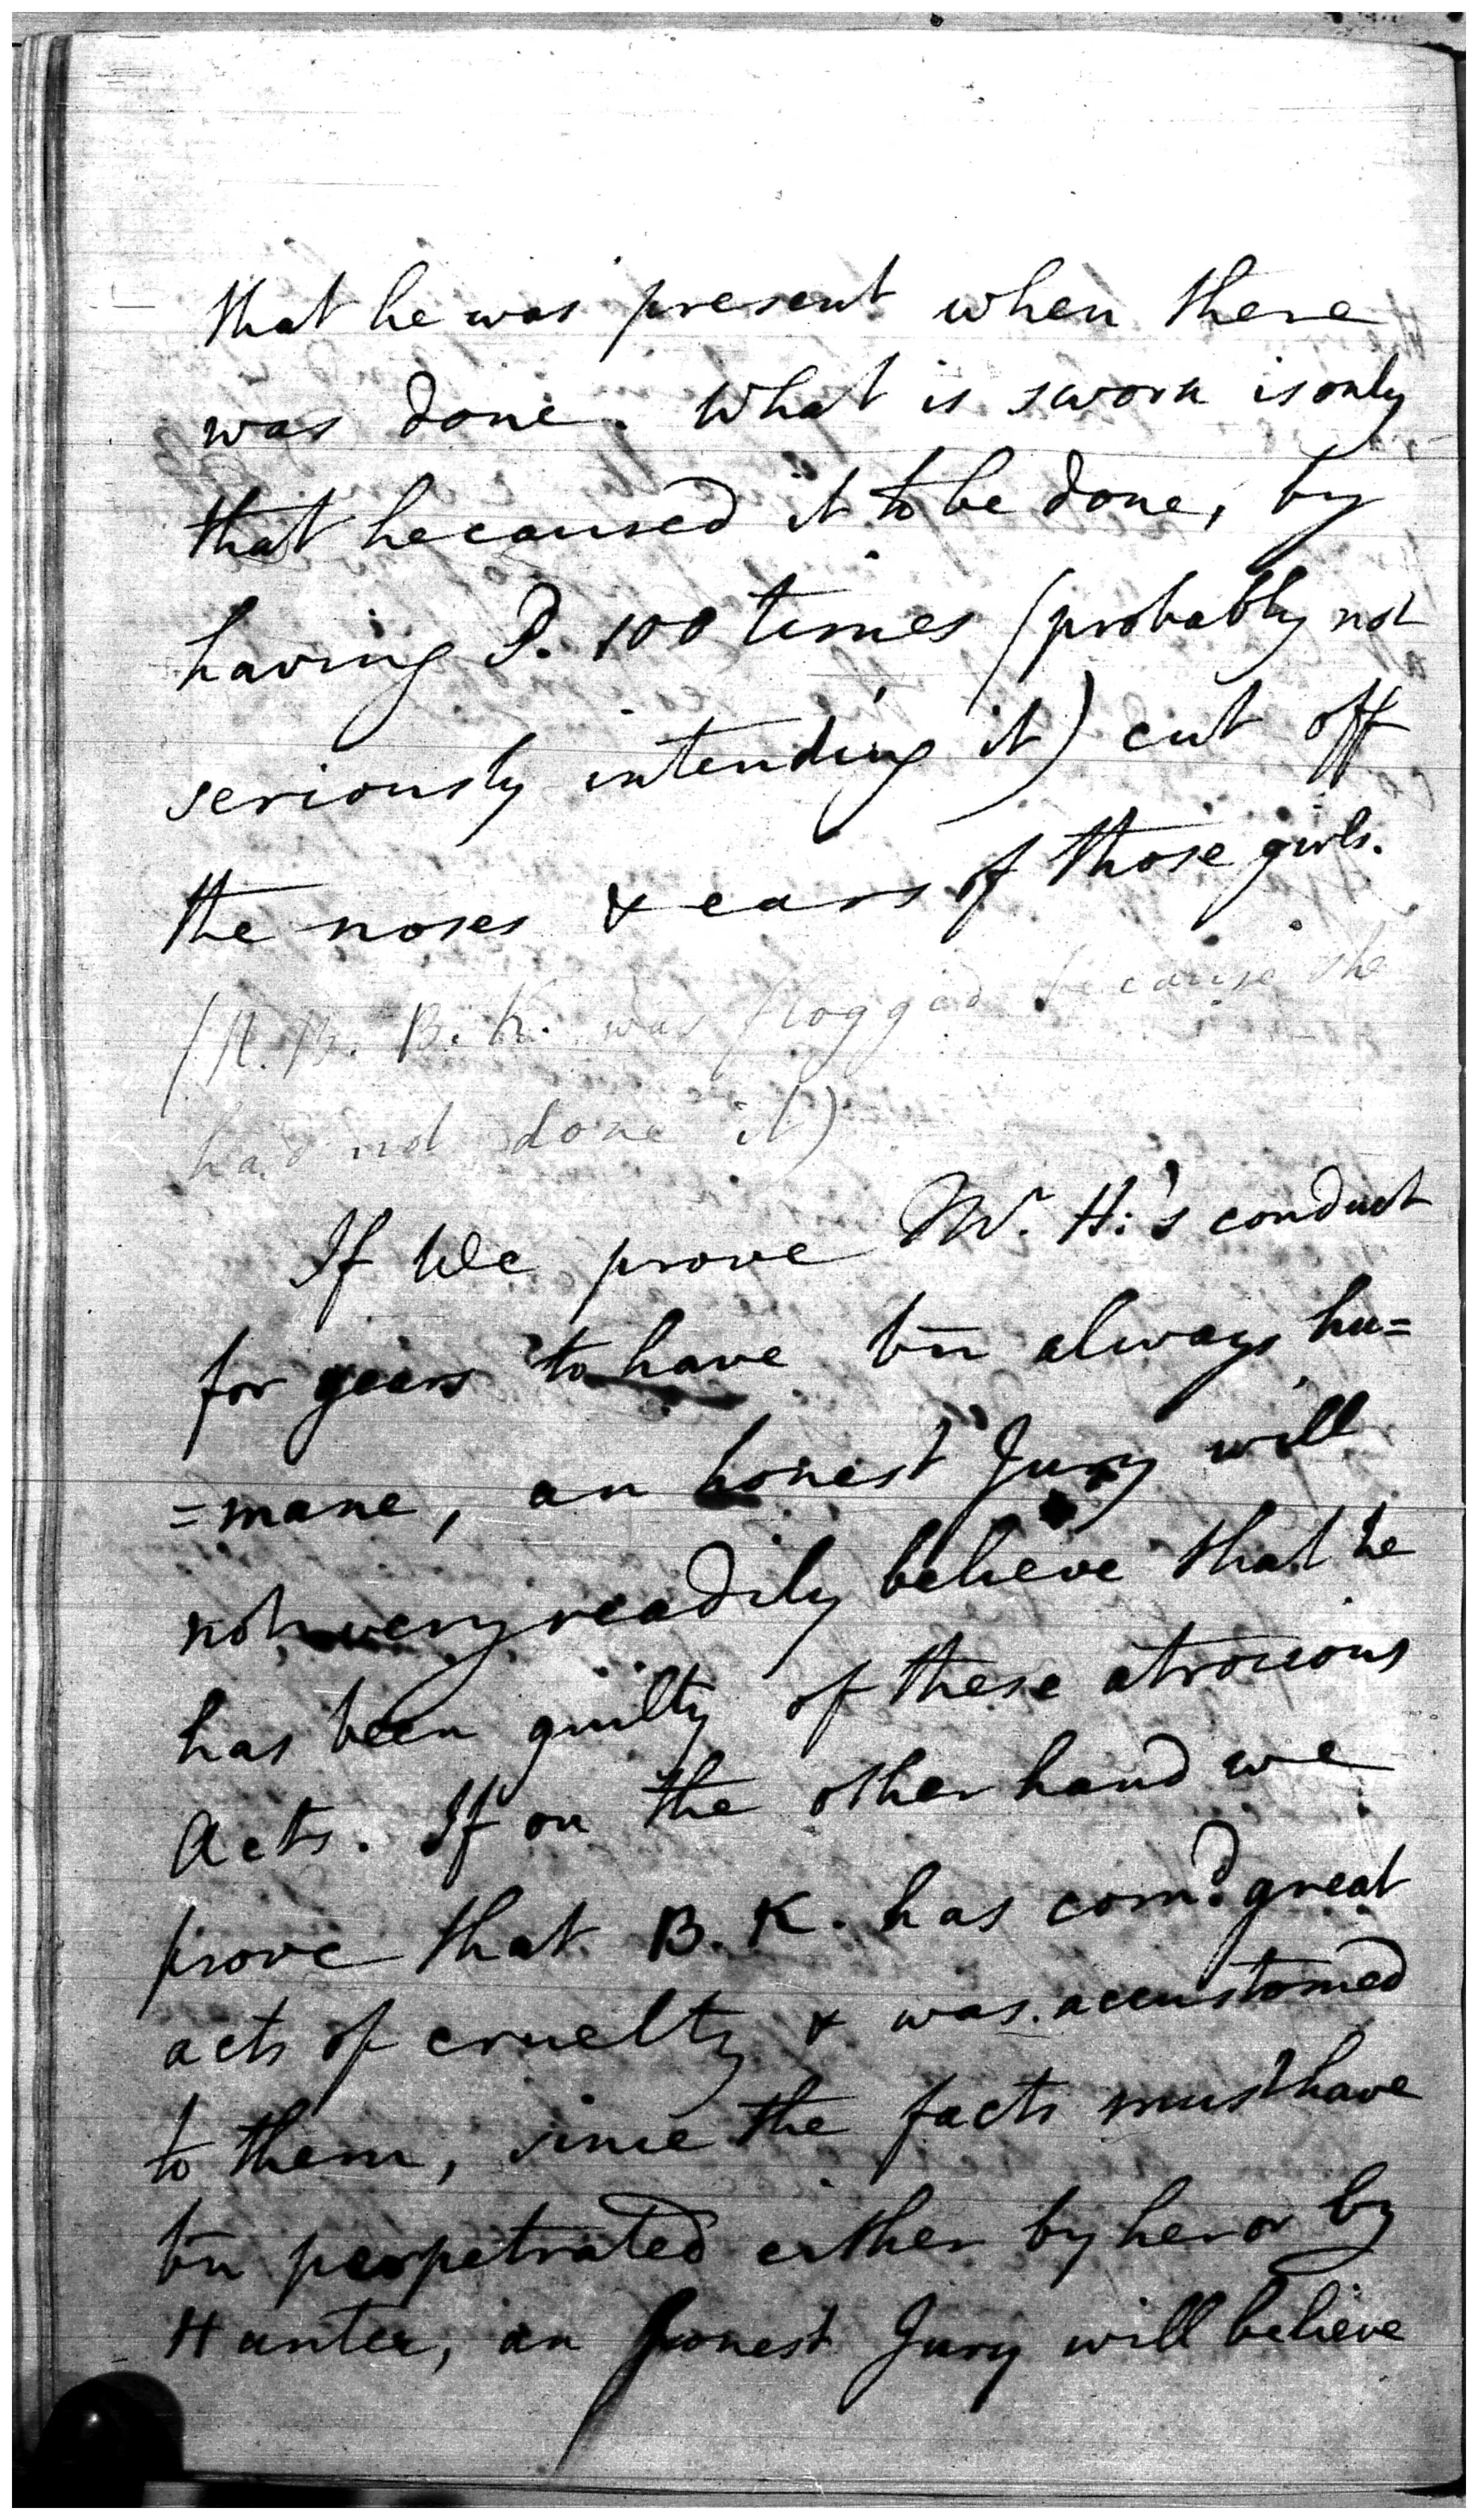 that he was present when there
was done. What is sworn is only
that he caused it to be done, by
having P. 100 times (probably not
seriously intending it) cut off
the noses & ears of those girls.
(N. B. B. K. was flogged because she
had not done it)
If We prove Mr. H:'s conduct
for years to have bn always hu=
=mane, an honest Jury will
not very readily believe that he
has been guilty of these atrocious
Acts. If on the other hand we
prove that B. K. has comd. great
acts of cruelty & was accustomed
to them, since the facts must have
bn perpetrated either by her or by
Hunter, an honest Jury will believe